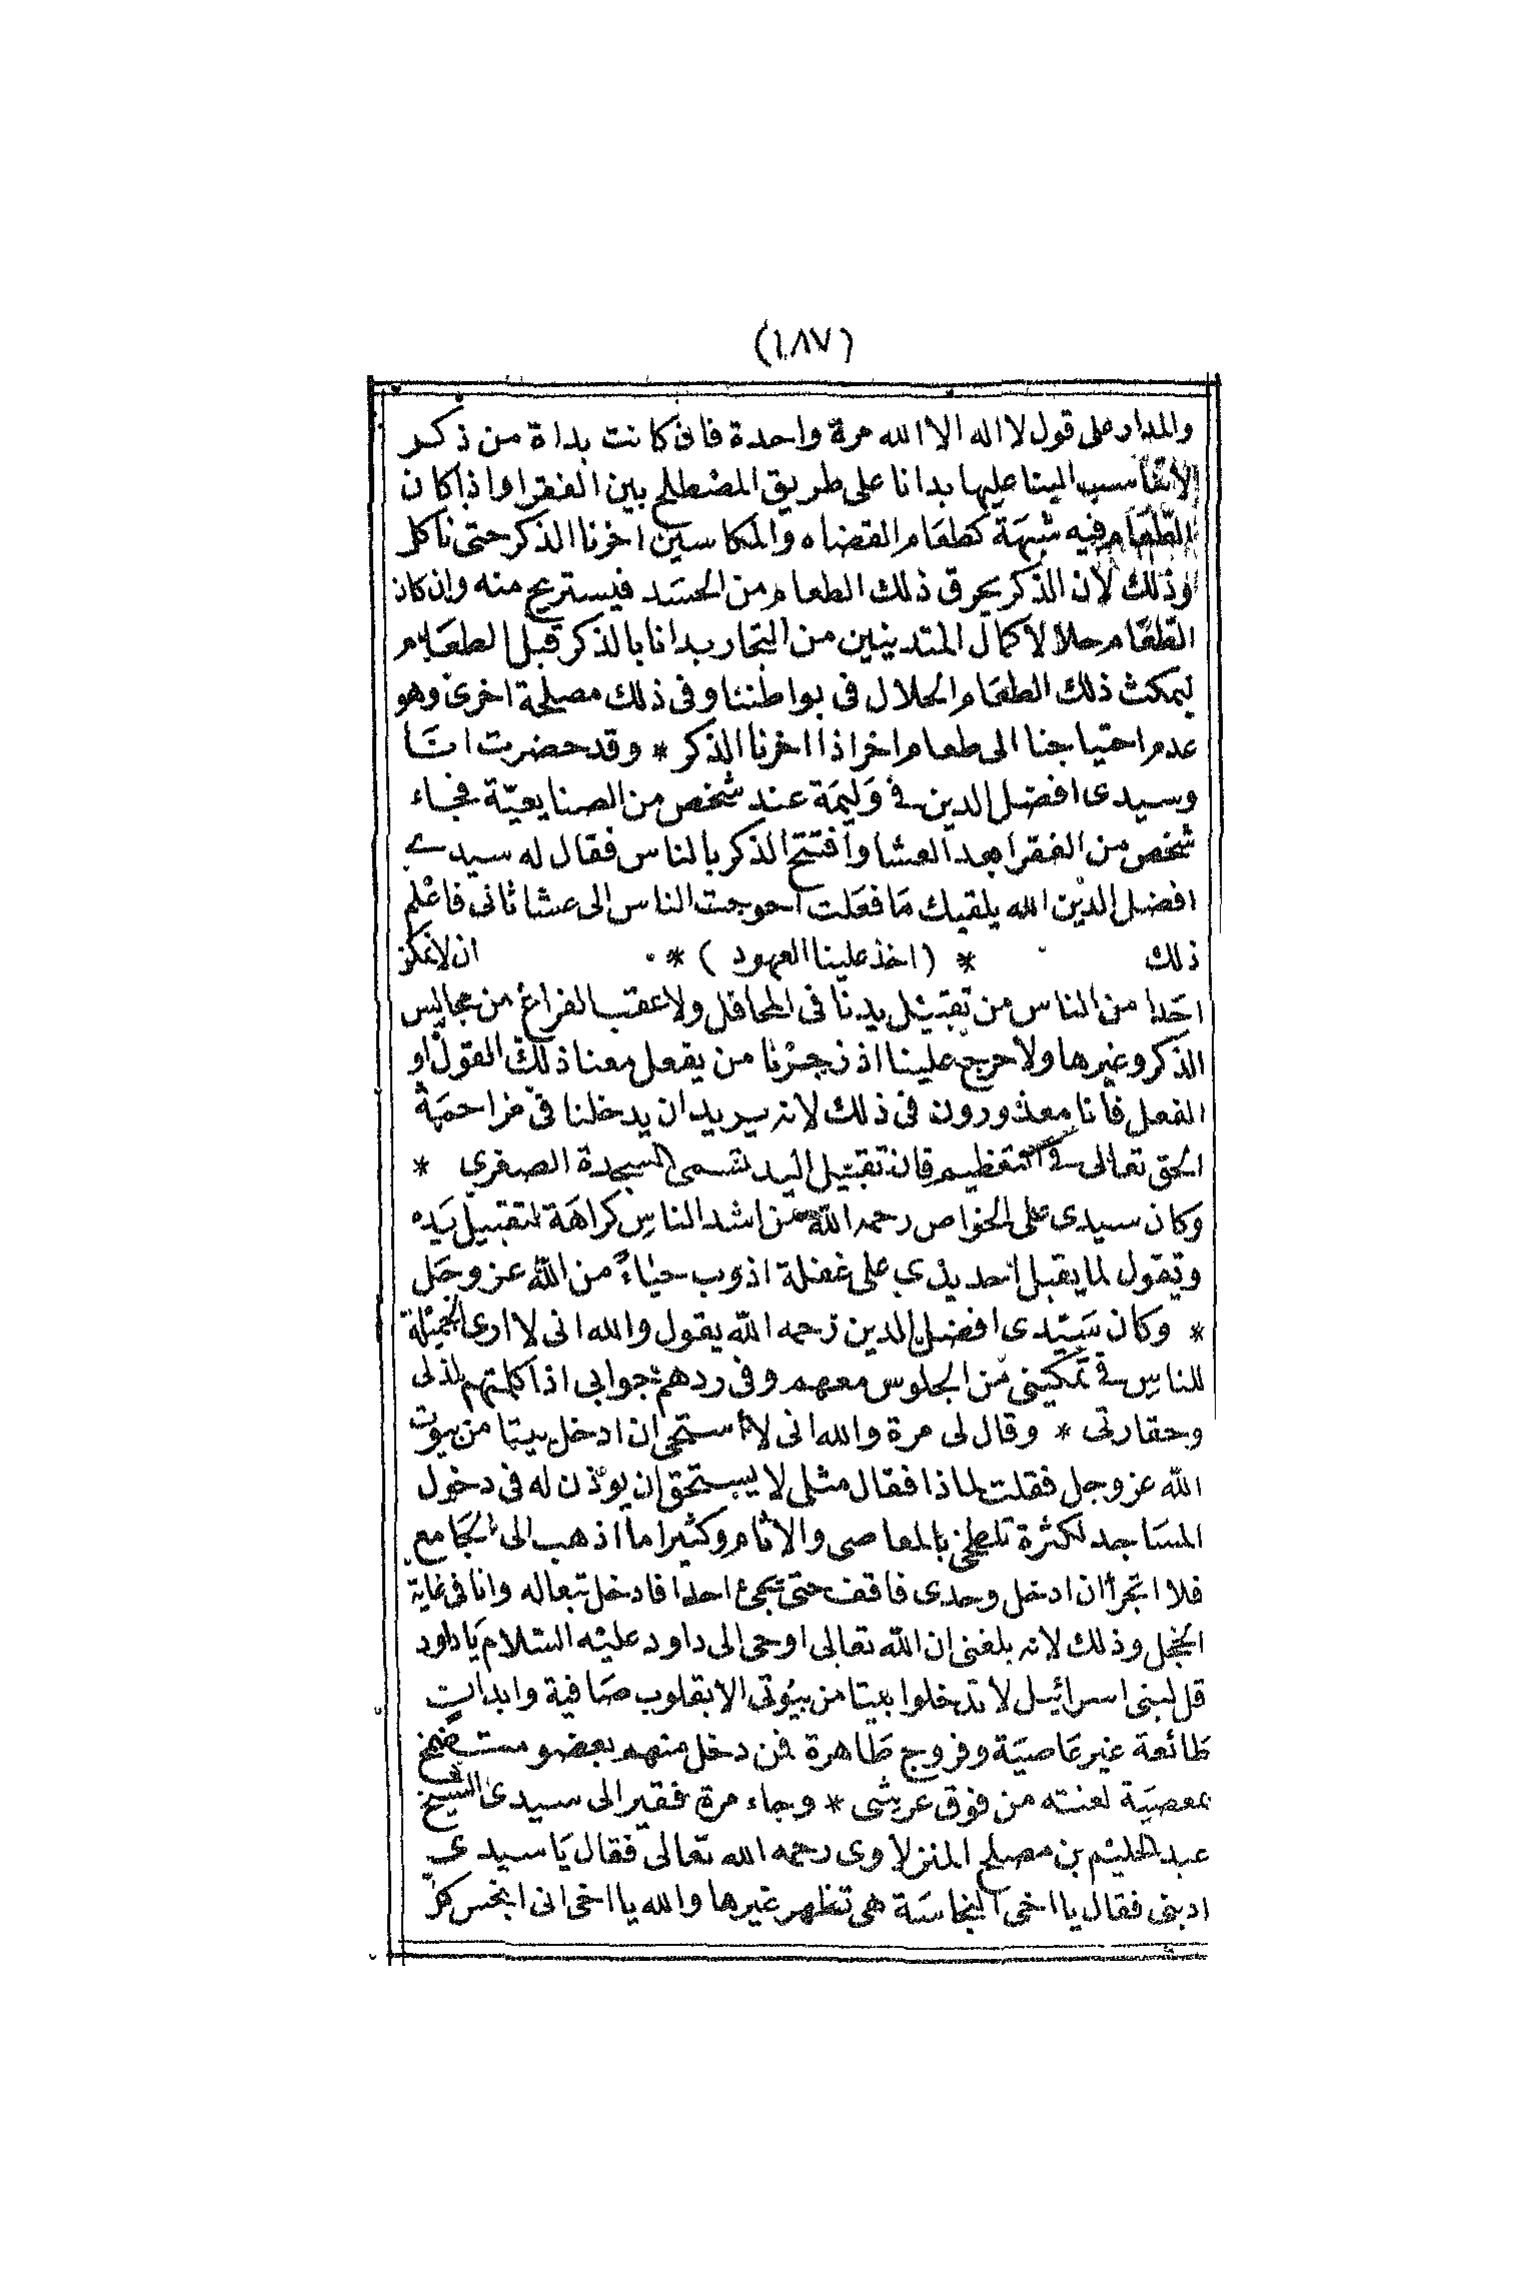 (١٨٧)
والمدار على قول لا اله الا الله مرة واحدة فان كانت بداة من ذكر
الانتساب الينا عليها بدانا على طريق المصطلح بين الفقرا واذا كان
الطعام فيه شبهة كطعام القضاه والمكاسين اخرنا الذكر حتى ناكل
وذلك لان الذكر يحرق ذلك الطعام من الجسد فيستريح منه وان كان
الطعام حلالا كمال المتدينين من التجار بدانا بالذكر قبل الطعام
ليمكث ذلك الطعام الحلال فى بواطننا وفى ذلك مصلحة اخرى وهو
عدم احتياجنا الى طعام اخر اذا اخرنا الذكر * وقد حضرت انا
وسيدى افضل الدين فى وليمة عند شخص من الصنايعية فجاء
شخص من الفقرا بعد العشا وافتتح الذكر بالناس فقال له سيدي
افضل الدين الله يلقيك ما فعلت احوجت الناس الى عشا ثانى فاعلم
ذلك * (اخذ علينا العهود) * ان لا نمكن
احدا من الناس من تقبيل يدنا فى المحافل ولا عقب الفراغ من مجاليس
الذكر وغيرها ولا حرج علينا اذ زجرنا من يفعل معنا ذلك القول او
الفعل فانا معذورون فى ذلك لانه يريد ان يدخلنا فى مزاحمة
الحق تعالى فى التعظيم فان تقبيل اليد تسمى السجدة الصغرى *
وكان سيدى على الخواص رحمه الله من اشد الناس كراهة لتقبيل يده
وتقول لما يقبل احد يدي على غفلة اذوب حياء من الله عز وجل
* وكان سيدى افضل الدين رحمه الله يقول والله انى لا ارى الجميلة
للناس فى تمكينى من الجلوس معهم وفى ردهم جوابى اذا كلمتهم لذلى
وحقارتى * وقال لى مرة والله انى لا استحى ان ادخل بيتا من بيوت
الله عز وجل فقلت لماذا فقال مثلى لا يستحق ان يوذن له فى دخول
المساجد لكثرة تلطخى بالمعاصى والاثام وكثيرا ما اذهب الى الجامع
فلا اتجرأ ان ادخل وحدى فاقف حتى يجئ احدا فادخل تبعا له وانا فى غاية
الخجل وذلك لانه بلغنى ان الله تعالى اوحى الى داود عليه السلام يا داود
قل لبنى اسرائيل لا تدخلوا بيتا من بيوتى الا بقلوب صافية وابدان
طائعة غير عاصية وفروج طاهرة فمن دخل منهم بعضو متضمخ
بمعصية لعنته من فوق عرشى * وجاء مرة فقير الى سيدى الشيخ
عبد الحليم بن مصلح المنزلاوى رحمه الله تعالى فقال يا سيدي
ادبنى فقال يا اخى النجاسة هى تطهر غيرها والله يا اخى انى انجس من